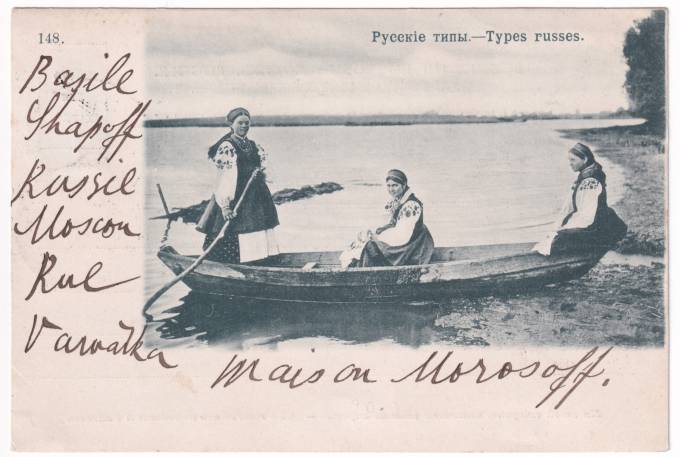 148.
Русскіе типы.—Types russes.
Basile
Shapoff
Russie
Moscou
Rue
Varvarka
Maison Morosoff.